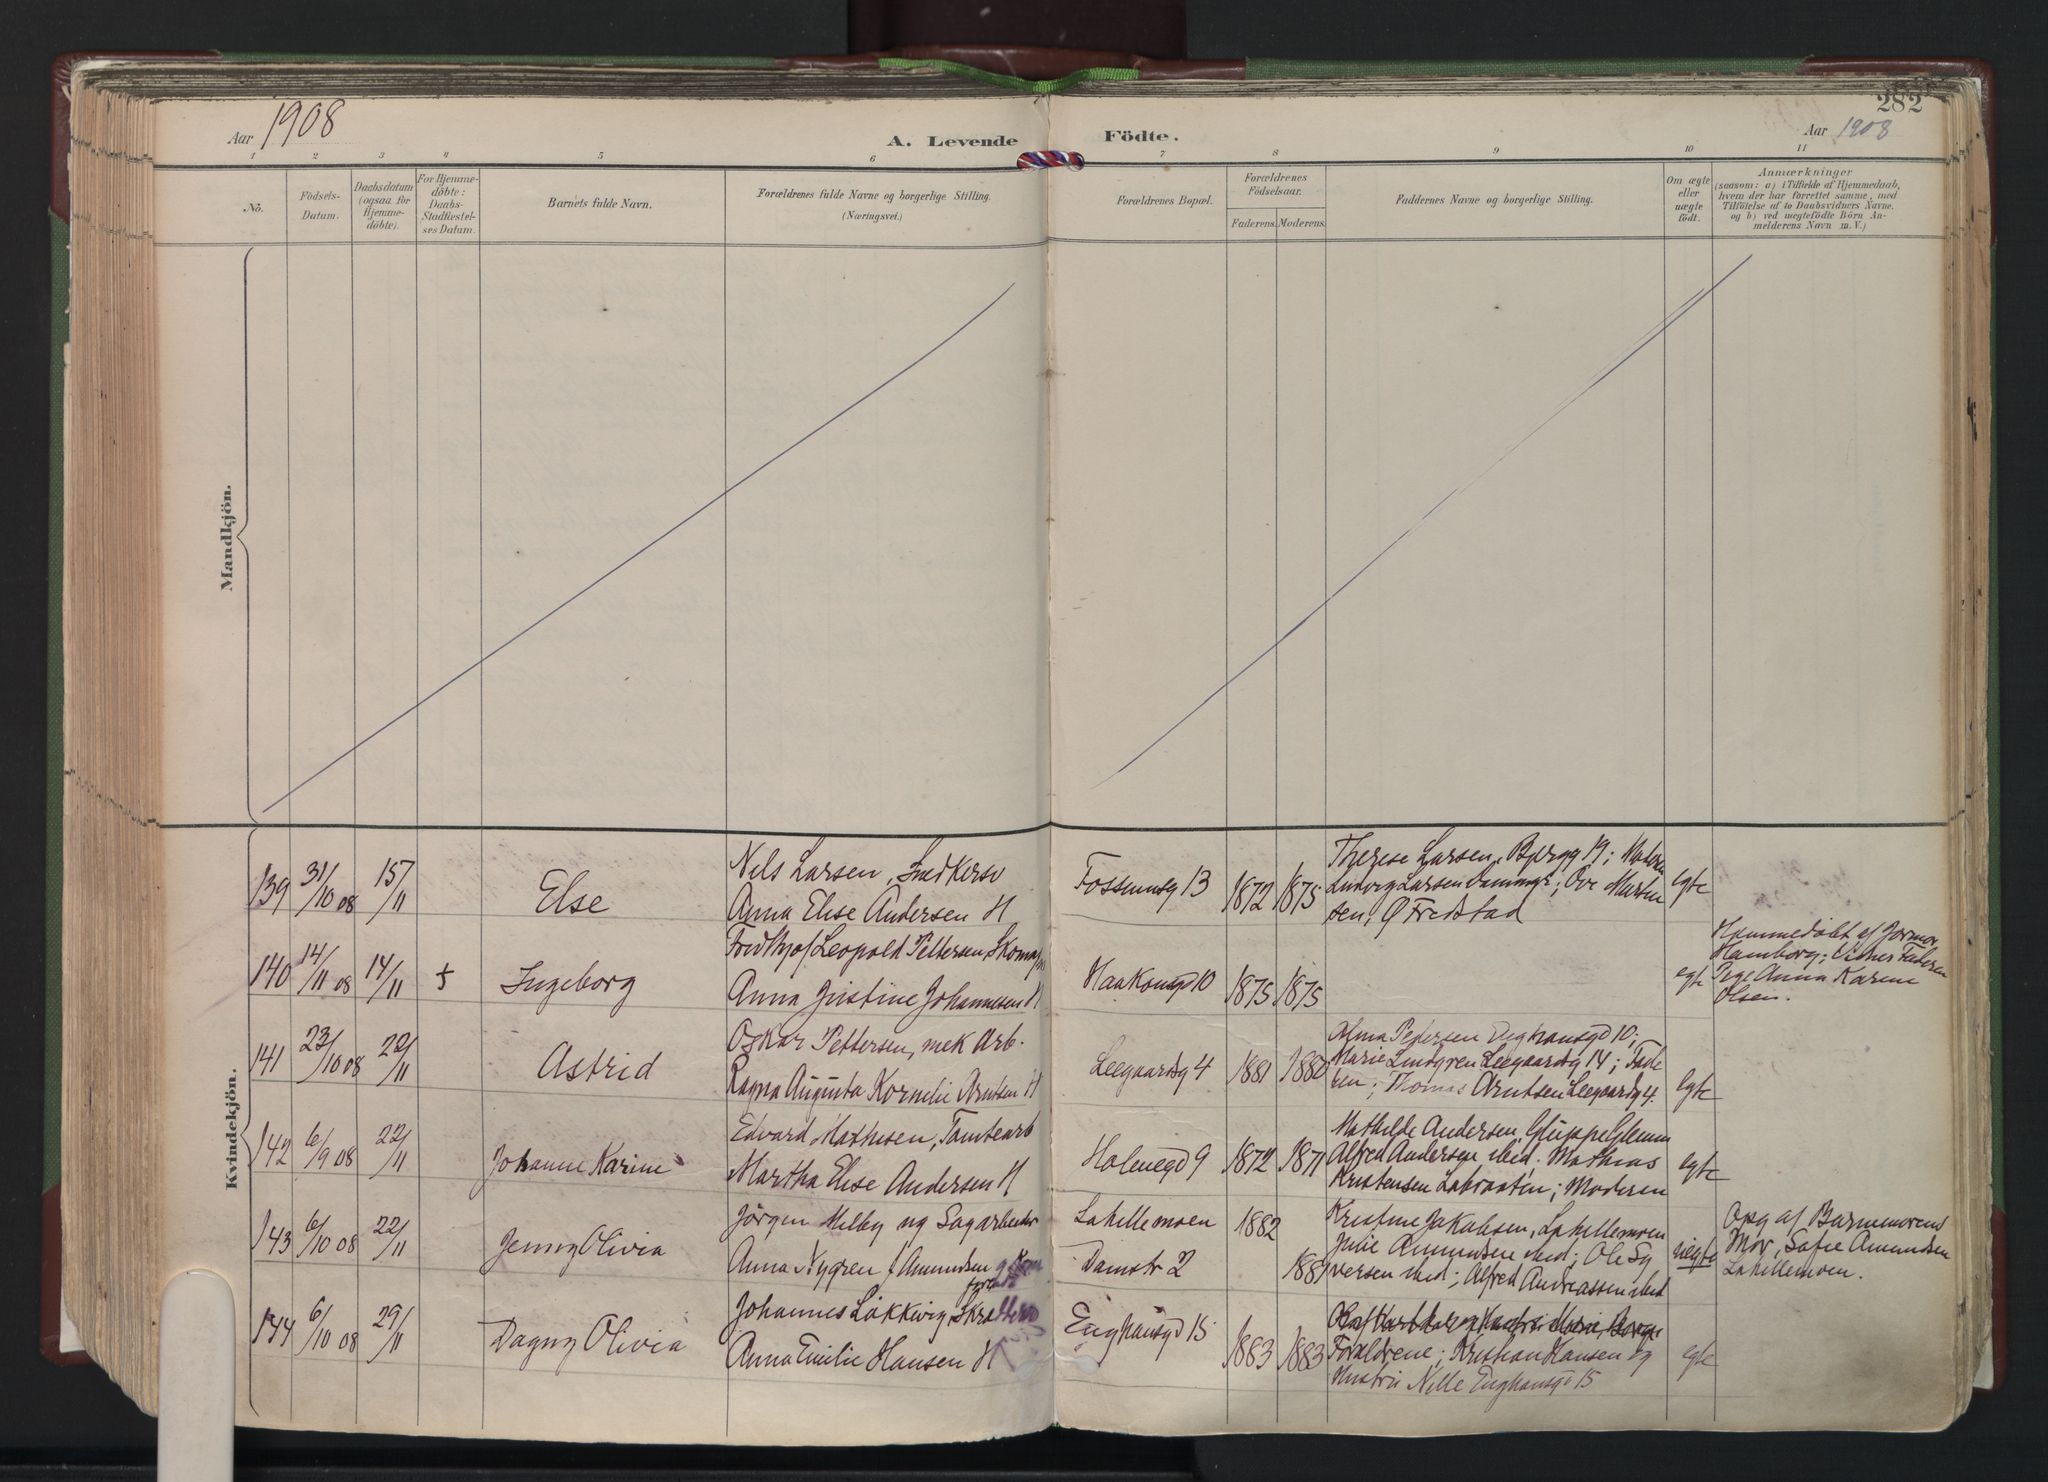 282
Aar 1908
A. Levende Födte.
Aar 1908
1 2 3 4 5 6 7 8 9 10 11
No.
Födsels-
Datum.
Daabsdatum
(ogsaa for
Hjemme-
döbte).
For Hjemme-
döbte:
Daabs-
Stadfæstel-
ses Datum.
Barnets fulde Navn.
Forældrenes fulde Navne og borgerlige Stilling.
(Næringsvei.)
Forældrenes Bopæl.
Forældrenes
Födselsaar.
Faderens. Moderens.
Faddernes Navne og borgerlige Stilling.
Om ægte
eller
uægte
födt.
Anmærkninger
(saasom: a) i Tilfælde af Hjemmedaab,
hvem der har forrettet samme, med
Tilföielse af to Daabsvidners Navne,
og b) ved uegtefödte Börn An-
melderens Navn m. V.)
Mandkjön.
Kvindekjön.
139 31/10 08 15/11
Else
Nils Larsen, Snedkersv
Anna Elise Andersen H
Fossumsg 13
1872 1875
Therese Larsen, Bjergg 19; Moderen
Ludvig Larsen ; Ove Marten
sen, Ø Fredstad
egte
140 14/11 08 14/11
Ingeborg
Fridthjof Leopold Pettersen Skomag
Anna Justine Johannesen H
Haakonsgd 10
1875 1875
egte
Hjemmedøbt af Jormor
Hamborg; Vidner Faderen
Pige Anna Karine
Olsen.
141 23/10 08 22/11
Astrid
Oskar Pettersen, mek Arb.
Ragna Augusta Kornelie Arntsen H
Leegaardsg 4
1881 1880
Alma Pedersen Enghausgd 10;
Marie Lindgren Leegaardsg 14; Fade
ren; Thomas Arntsen Leegaardsg 4.
egte
142 6/9 08 22/11
Johanne Karine
Edvard Mathisen, Tomtearb
Martha Elise Andersen H
Holmegd 9
1872 1871
Mathilde Andersen, Gluppe Glemm
Alfred Andersen ibid. Mathias
Kristensen Labraaten; Moderen
egte
143 6/10 08 22/11
Jenny Olivia
Jørgen Melby ug Sagarbeider
Anna Nygren f Amundsen
Lahillemoen
Damstr 2
1882
1881
Kristine Jakobsen, Lahillemoen
Julie Amundsen ibid; Ole Sy
versen ibid; Alfred Andreassen ibid
uegte
Opg af Barnemorens
Mor, Sofie Amundsen
Lahillemoen.
144 6/10 08 29/11
Dagny Olivia
Johannes Løkkevig, Skrædder
Anna Emilie Hansen H
Enghausgd 15
1883 1883
Forældrene; Kristian Hansen og
Hustru Nille Enghausgd 15
egte